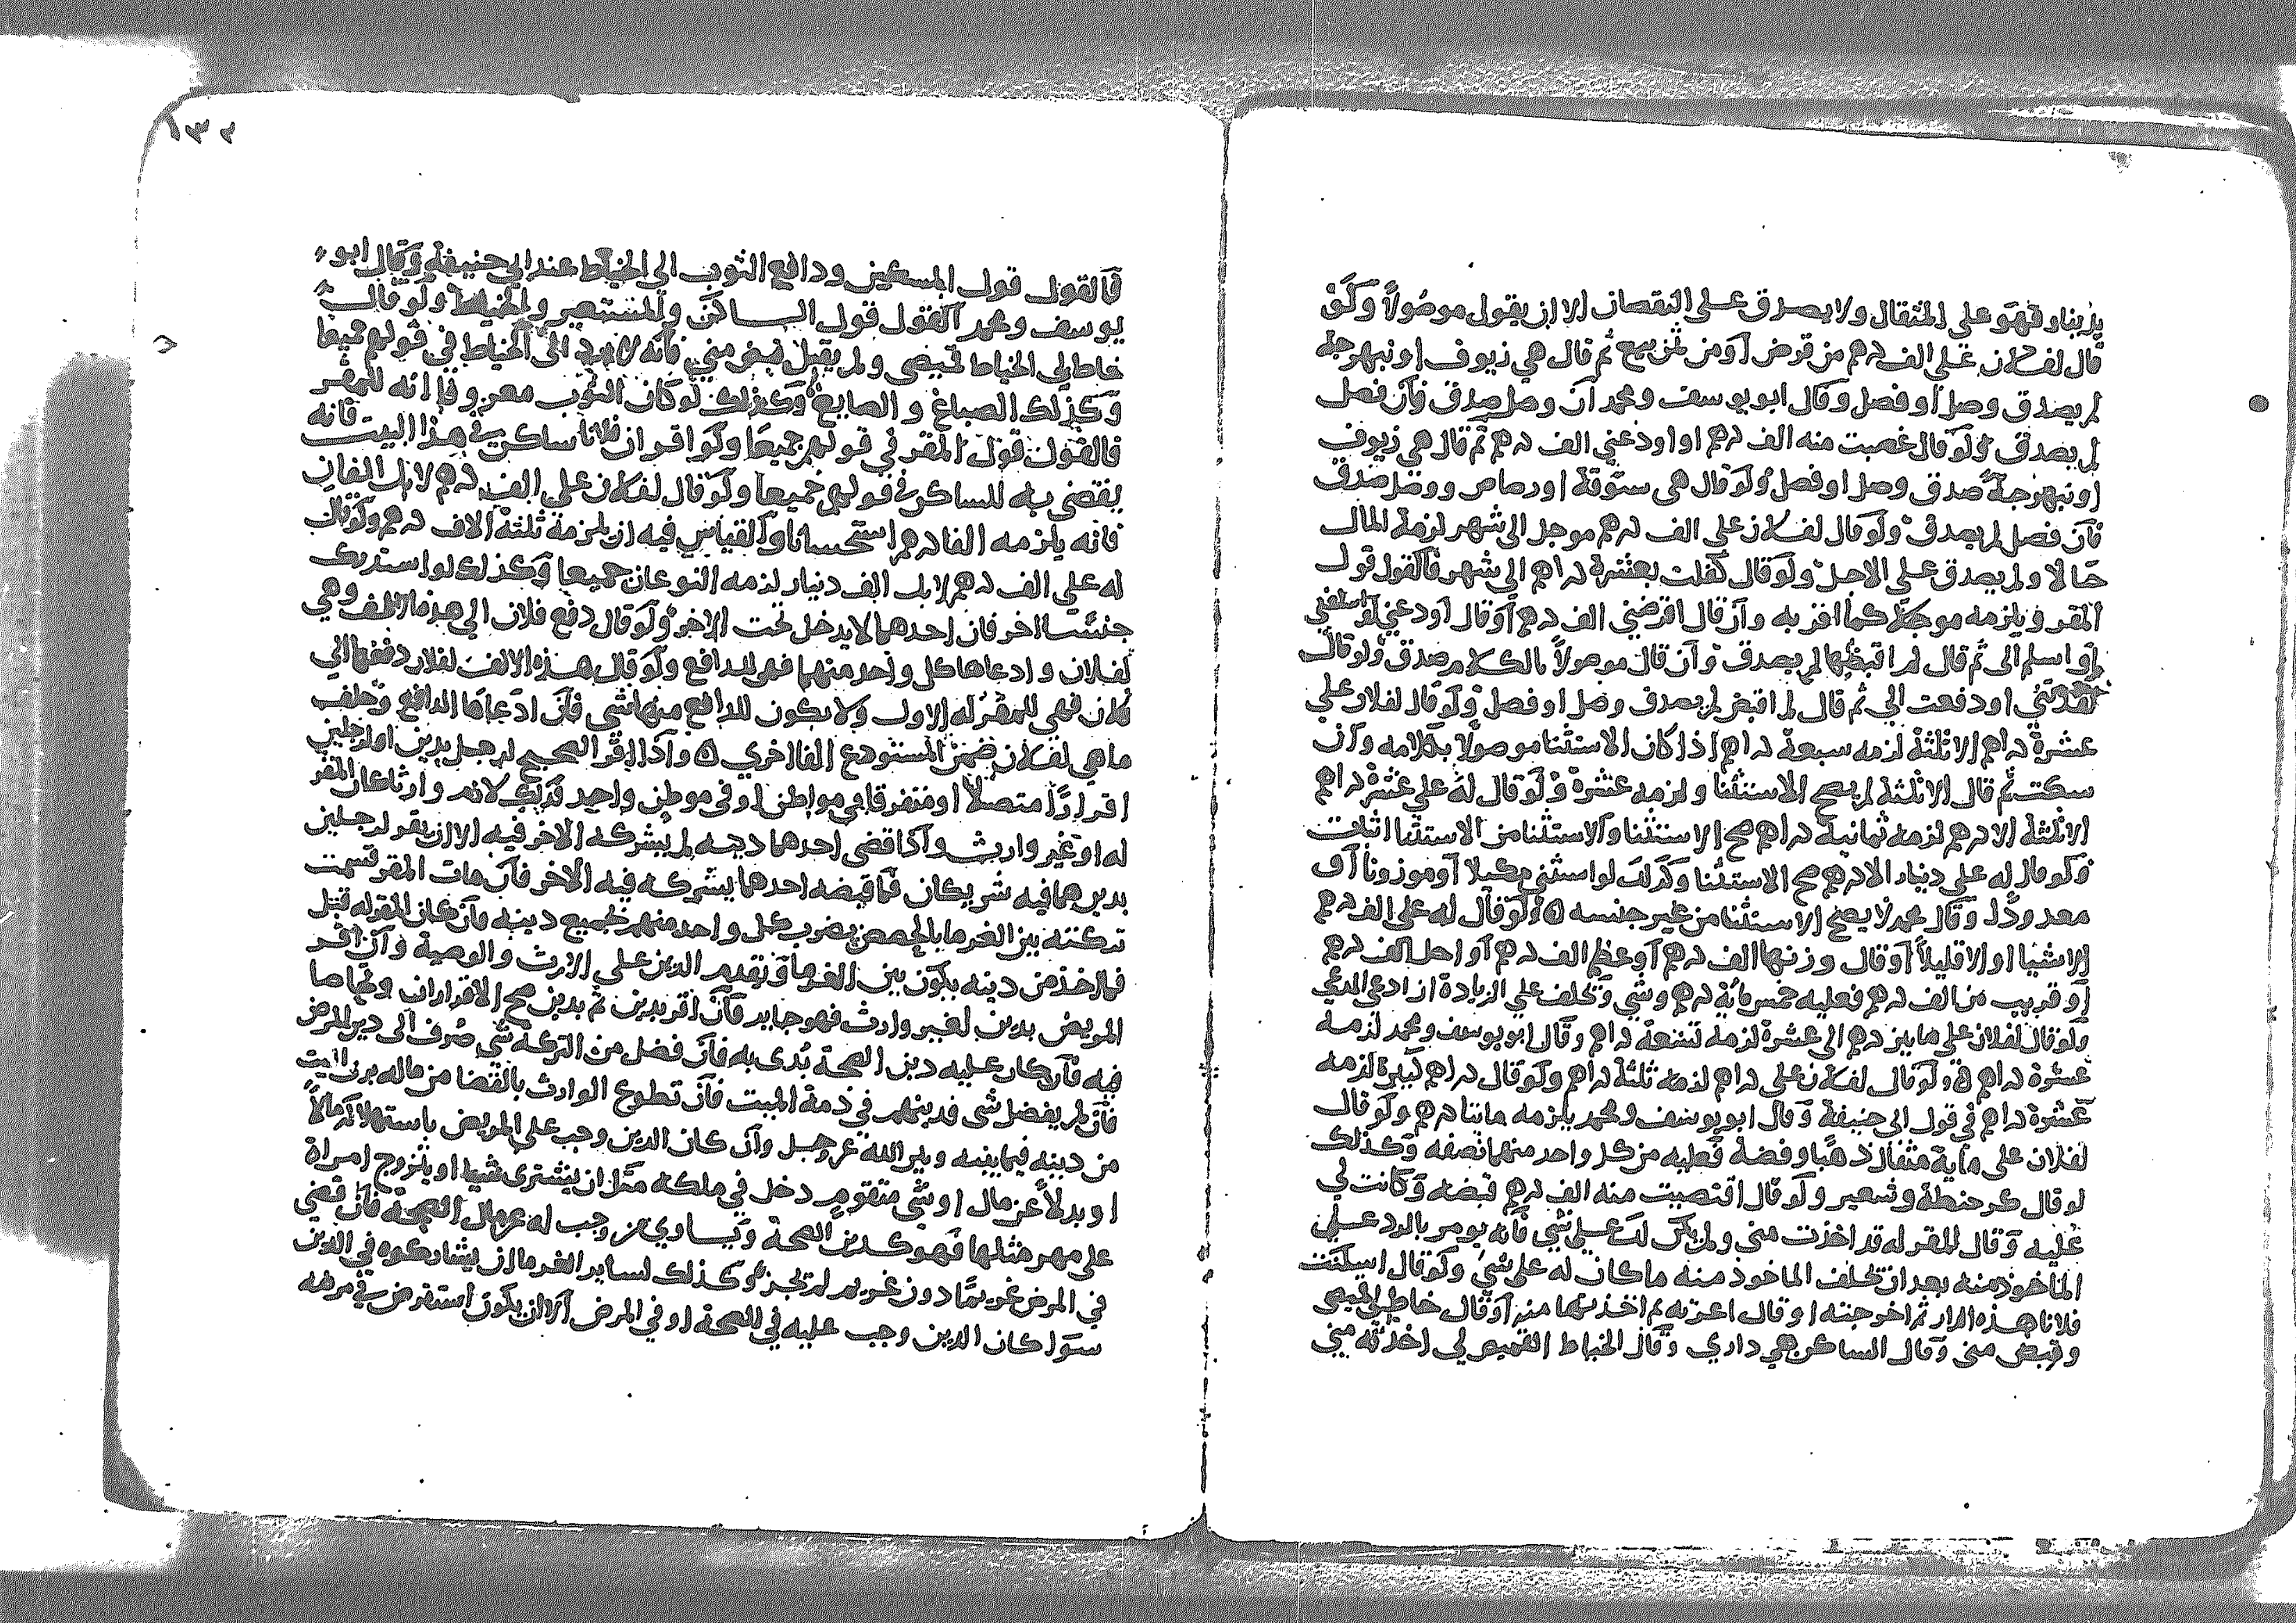 بدينار فهو على المثقال ولا يصدق على النقصان الا ان يقول موصولا ولو
قال لفلان على الف درهم من قرض او من ثمن بيع ثم قال هي زيوف او نبهرجة
لم يصدق وصل او فصل وقال ابو يوسف ومحمد ان وصل صدق فان فصل
لم يصدق ولو قال غصبت منه الف درهم او اودعني الف درهم ثم قال هي زيوف
او نبهرجة صدق وصل او فصل ولو قال هى ستوقة او رصاص ووصل صدق
فان فصل لم يصدق ولو قال لفلان على الف درهم موجل الى شهر لزمه المال
حالا ولم يصدق على الاجل ولو قال كفلت بعشرة دراهم الى شهر فالقول قول
المقر ويلزمه موجلا كما اقر به وان قال اقرضني الف درهم او قال اودعني او اسلفني
او اسلم الى ثم قال لم اقبضها لم يصدق وان قال موصولا بالكلام صدق ولو قال
نقدتني او دفعت الي ثم قال لم اقبض لم يصدق وصل او فصل ولو قال لفلان علي
عشرة دراهم الا ثلثة لزمه سبعة دراهم اذا كان الاستثنا موصولا بكلامه وان
سكت ثم قال الا ثلثة لم يصح الاستثنا ولزمه عشرة ولو قال له علي عشرة دراهم
الا ثلثة الا درهم لزمه ثمانية دراهم صح الاستثنا والاستثنا من الاستثنا اثبات
ولو قال له علي دينار الا درهم صح الاستثنا وكذلك لو استثنى مكيلا او موزونا او
معدودا وقال محمد لا يصح الاستثنا من غير جنسه ولو قال له على الف درهم
الا شيا او الا قليلا او قال وزنها الف درهم او عظم الف درهم او اجل الف درهم
او قريب من الف درهم فعليه خمس ماية درهم وشي وتحلف علي الزيادة ان ادعى المدعي
ولو قال لفلان على ما بين درهم الى عشرة لزمه تسعة دراهم وقال ابو يوسف ومحمد لزمه
عشرة دراهم ولو قال لفلان على دراهم لزمه ثلثة دراهم ولو قال دراهم كثيرة لزمه
عشرة دراهم في قول ابي حنيفة وقال ابو يوسف ومحمد يلزمه مائتا درهم ولو قال
لفلان على ماية مثقال ذهبا وفضة فعليه من كل واحد منهما نصفه وكذلك
لو قال كر حنطة وشعير ولو قال اقتضيت منه الف درهم قبضه وكانت لي
عليه وقال المقر له قد اخذت مني ولم يكن لك علي شي فانه يومر بالرد على
الماخوذ منه بعد ان تحلف الماخوذ منه ما كان له على شي ولو قال اسكنت
فلانا هذه الدار ثم اخرجته او قال اعرته ثم اخذتها منه او قال خاط لي قميصى
وقبض مني وقال الساكن هي داري وقال الخياط القميص لي اخذته مني
١٣٢
فالقول قول المسكن ودافع الثوب الي الخياط عند ابي حنيفة وقال ابو
يوسف ومحمد القول قول الساكن والمستعير والخياط ولو قال
خاط لي الخياط قميصى ولم يقبل قبض مني فانه لا يرد الى الخياط في قولهم جميعا
وكذلك الصباغ والصايغ وكذلك لو كان الثوب معروفا انه للمقر
فالقول قول المقر في قولهم جميعا ولو اقر ان فلانا ساكن في هذا البيت فانه
يقضى به للساكن في قولهم جميعا ولو قال لفلان على الف درهم لا بل الفان
فانه يلزمه الفا درهم استحسانا والقياس فيه ان يلزمه ثلثة الاف درهم ولو قال
له علي الف درهم لا بل الف دينار لزمه النوعان جميعا وكذلك لو استدرك
جنسا اخر فان احدهما لا يدخل تحت الاخر ولو قال دفع فلان الى هذه الالف وهي
لفلان وادعاها كل واحد منهما فهي للدافع ولو قال هذه الالف لفلان دفعها الي
فلان فهي للمقر له الاول ولا يكون للدافع منها شي فان ادعاها الدافع وحلف
ما هي لفلان ضمن المستودع الفا اخري واذا اقر الصحيح لرجل بدين او لرجلين
اقرارا متصلا او متفرقا في مواطن او في موطن واحد فذلك لازم وارثا كان المقر
له او غير وارث واذا قضى احدهما دينه لم يشركه الاخر فيه الا ان يقر لرجلين
بدين هما فيه شريكان فما قبضه احدهما يشركه فيه الاخر فان مات المقر قسمت
تركته بين الغرما بالحصص يضرب كل واحد منهم بجميع دينه فان كان المقر له قبل
فما اخذ من دينه يكون بين الغرما ونقدم الدين على الارث والوصية وان اقر
المريض بدين لغير وارث فهو جايز فان اقر بدين ثم بدين صح الاقراران وتحاصا
فيه فان كان عليه دين الصحة بدى به فان فضل من التركة شي صرف الى دين المرض
فان لم يفضل شى فدينهم في ذمة الميت فان تطوع الوارث بالقضا من ماله برى الميت
من دينه فيما بينه وبين الله عز وجل وان كان الدين وجب على المريض باستهلاكه مالا
او بدلا عن مال او شي متقوم دخل في ملكه مثل ان يشترى شيا او يتزوج امراة
على مهر مثلها فهو كدين الصحة ويساوي من وجب له عن مال الصحة فان قضي
في المرض غريما دون غريم لم تجز وكذلك لساير الغرما ان يشاركوه في الدين
سوا كان الدين وجب عليه في الصحة او في المرض الا ان يكون استقرض في مرضه